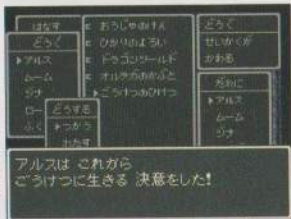 はなす
どうぐ
▶アルス
ムーム
ジナ
ロー
ふく
どうする
▶つかう
わたす
E おうじゃのけん
E ひかりのよろい
E ドラゴンシールド
E オルテガのかぶと
▶ごうけつのひけつ
どうぐ
せいかくが
かわる
だれに
▶アルス
ムーム
ジナ
アルスは これから
ごうけつに生きる 決意をした!